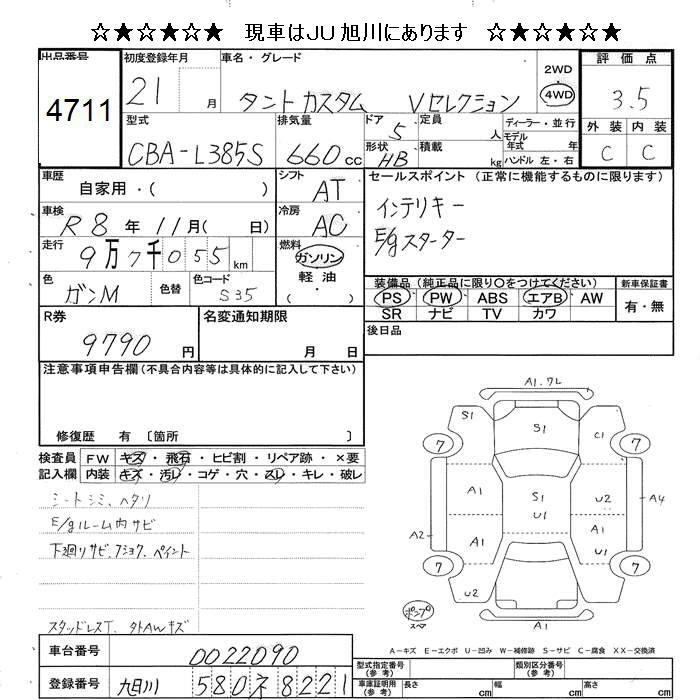 ☆★☆★☆★☆ 現車はJU旭川にあります ☆★☆★☆★☆
出品番号 初度登録年月 車名・グレード 評価点
4711 21 月 タントカスタム Vセレクション 2WD 4WD 3.5
型式 排気量 ドア 定員 ディーラー・並行 外装 内装
CBA-L385S 660cc 5 人 モデル年式 年 C C
形状 HB 積載 kg ハンドル 左・右
車歴 シフト セールスポイント (正常に機能するものに限ります)
自家用・( ) AT インテリキー
車検 冷房 E/gスターター
R8年 11月( 日) AC
走行 燃料
9万7千055km ガソリン・軽油・( )
色 色替 色コード 装備品(純正品に限り○をつけてください) 新車保証書
ガンM S35 PS・PW・ABS・エアB・AW 有・無
SR ナビ TV カワ
R券 名変通知期限 後日品
9790円 月 日
注意事項申告欄(不具合内容等は具体的に記入して下さい)
修復歴 有 〔箇所 〕
検査員 FW キズ・飛石・ヒビ割・リペア跡・×要
記入欄 内装 キズ・汚レ・コゲ・穴・スレ・キレ・破レ
シートシミ、ヘタリ
E/gルーム内サビ
下廻リサビ、フショク、ペイント
スタッドレスT、タトAWキズ
A1.フL
S1 S1 C1
7 7
A1 S1 U2 A4
U1
A2 A1 A1
U1
7 7
U2
A1
ポンプ
スペア
A-キズ E-エクボ U-凹み W-補修跡 S-サビ C-腐食 XX-交換済
車台番号 0022090 型式指定番号(参考) 類別区分番号(参考)
登録番号 旭川 580 ネ 8221 車庫証明用(参考) 長さ cm 幅 cm 高さ cm